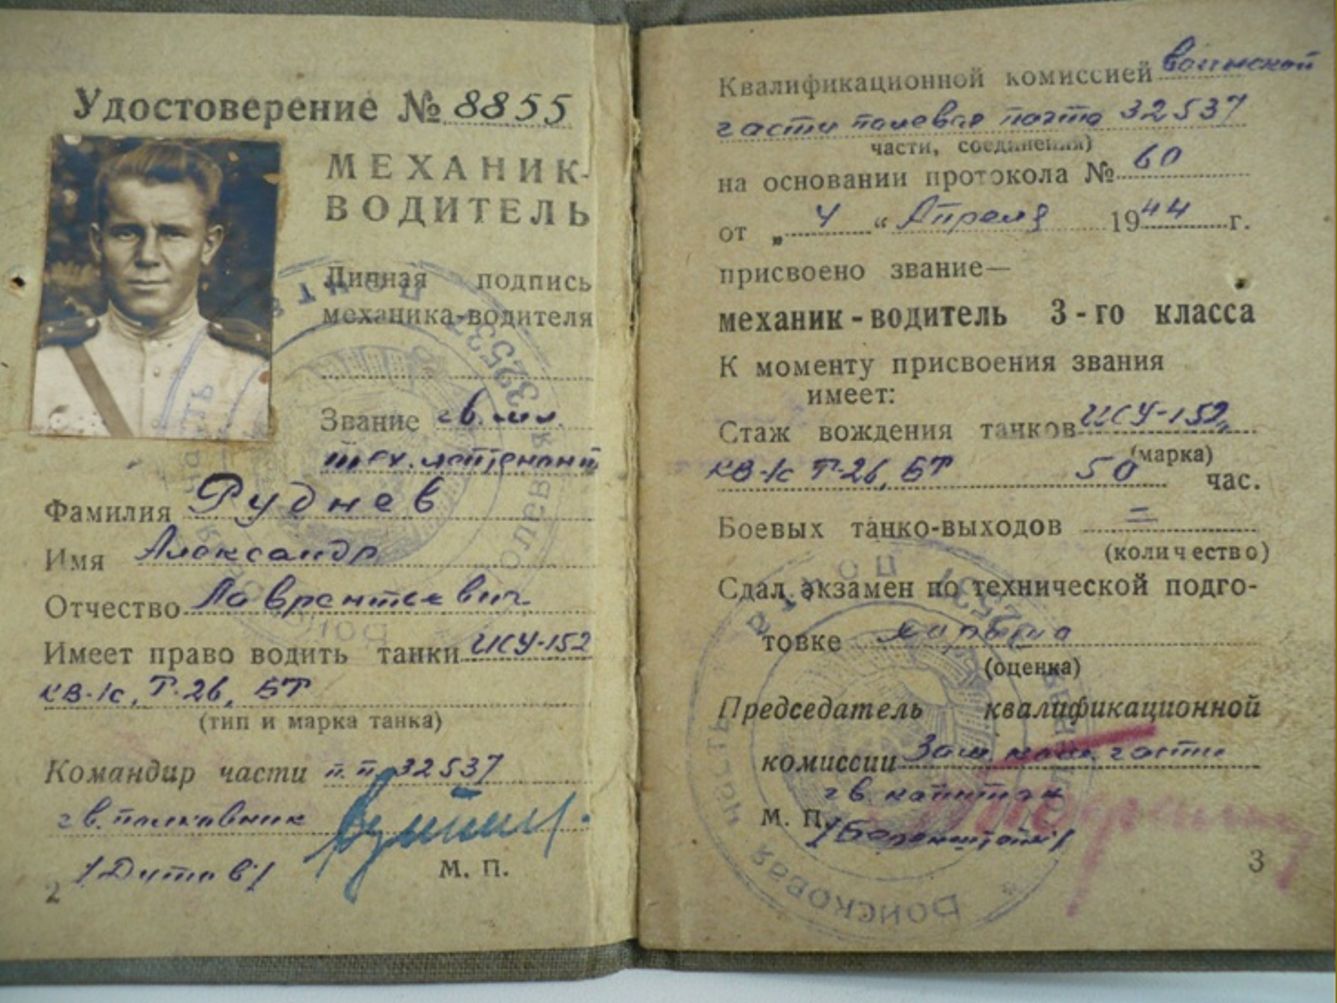 Удостоверение № 8855
МЕХАНИК-
ВОДИТЕЛЬ
Личная подпись
механика-водителя
Звание гв. мл.
тех. лейтенант
Фамилия Руднев
Имя Александр
Отчество Лаврентьевич
Имеет право водить танки ИСУ-152
КВ-1с, Т-26, БТ
(тип и марка танка)
Командир части п.п. 32537
гв. полковник
/Дутов/
М. П.
2
Квалификационной комиссией воинской
части полевая почта 32537
части, соединения)
на основании протокола № 60
от „ 4 “ Апреля 1944 г.
присвоено звание—
механик-водитель 3-го класса
К моменту присвоения звания
имеет:
Стаж вождения танков ИСУ-152,
(марка)
КВ-1с Т-26, БТ 50 час.
Боевых танко-выходов =
(количество)
Сдал экзамен по технической подго-
товке хорошо
(оценка)
Председатель квалификационной
комиссии Зам. ком. части
гв капитан
М. П.
3
Войсковая часть полевая почта 32537
Войсковая часть полевая почта 32537